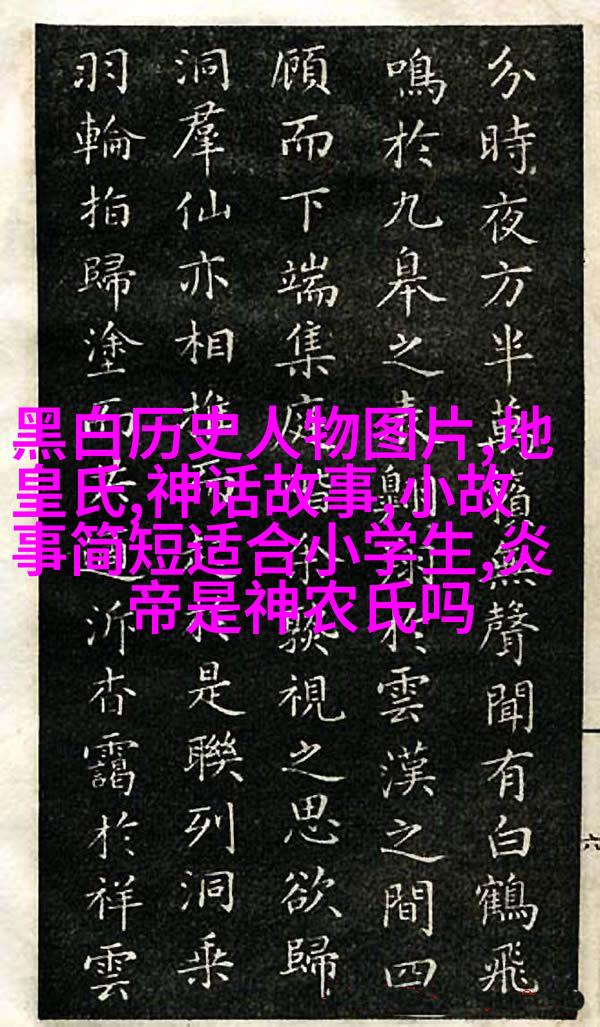 黑白历史人物图片,地
皇氏,神话故事,小故
事简短适合小学生,炎
帝是神农氏吗
分時夜方半萬籟無聲聞有白鶴飛
鳴於九皋之表翱翔於雲漢之間四
顧而下端集庭階徐視之思欲歸
洞羣仙亦相而於是聯列洞乘
羽輪拍歸塗而沂杳靄於祥雲
六